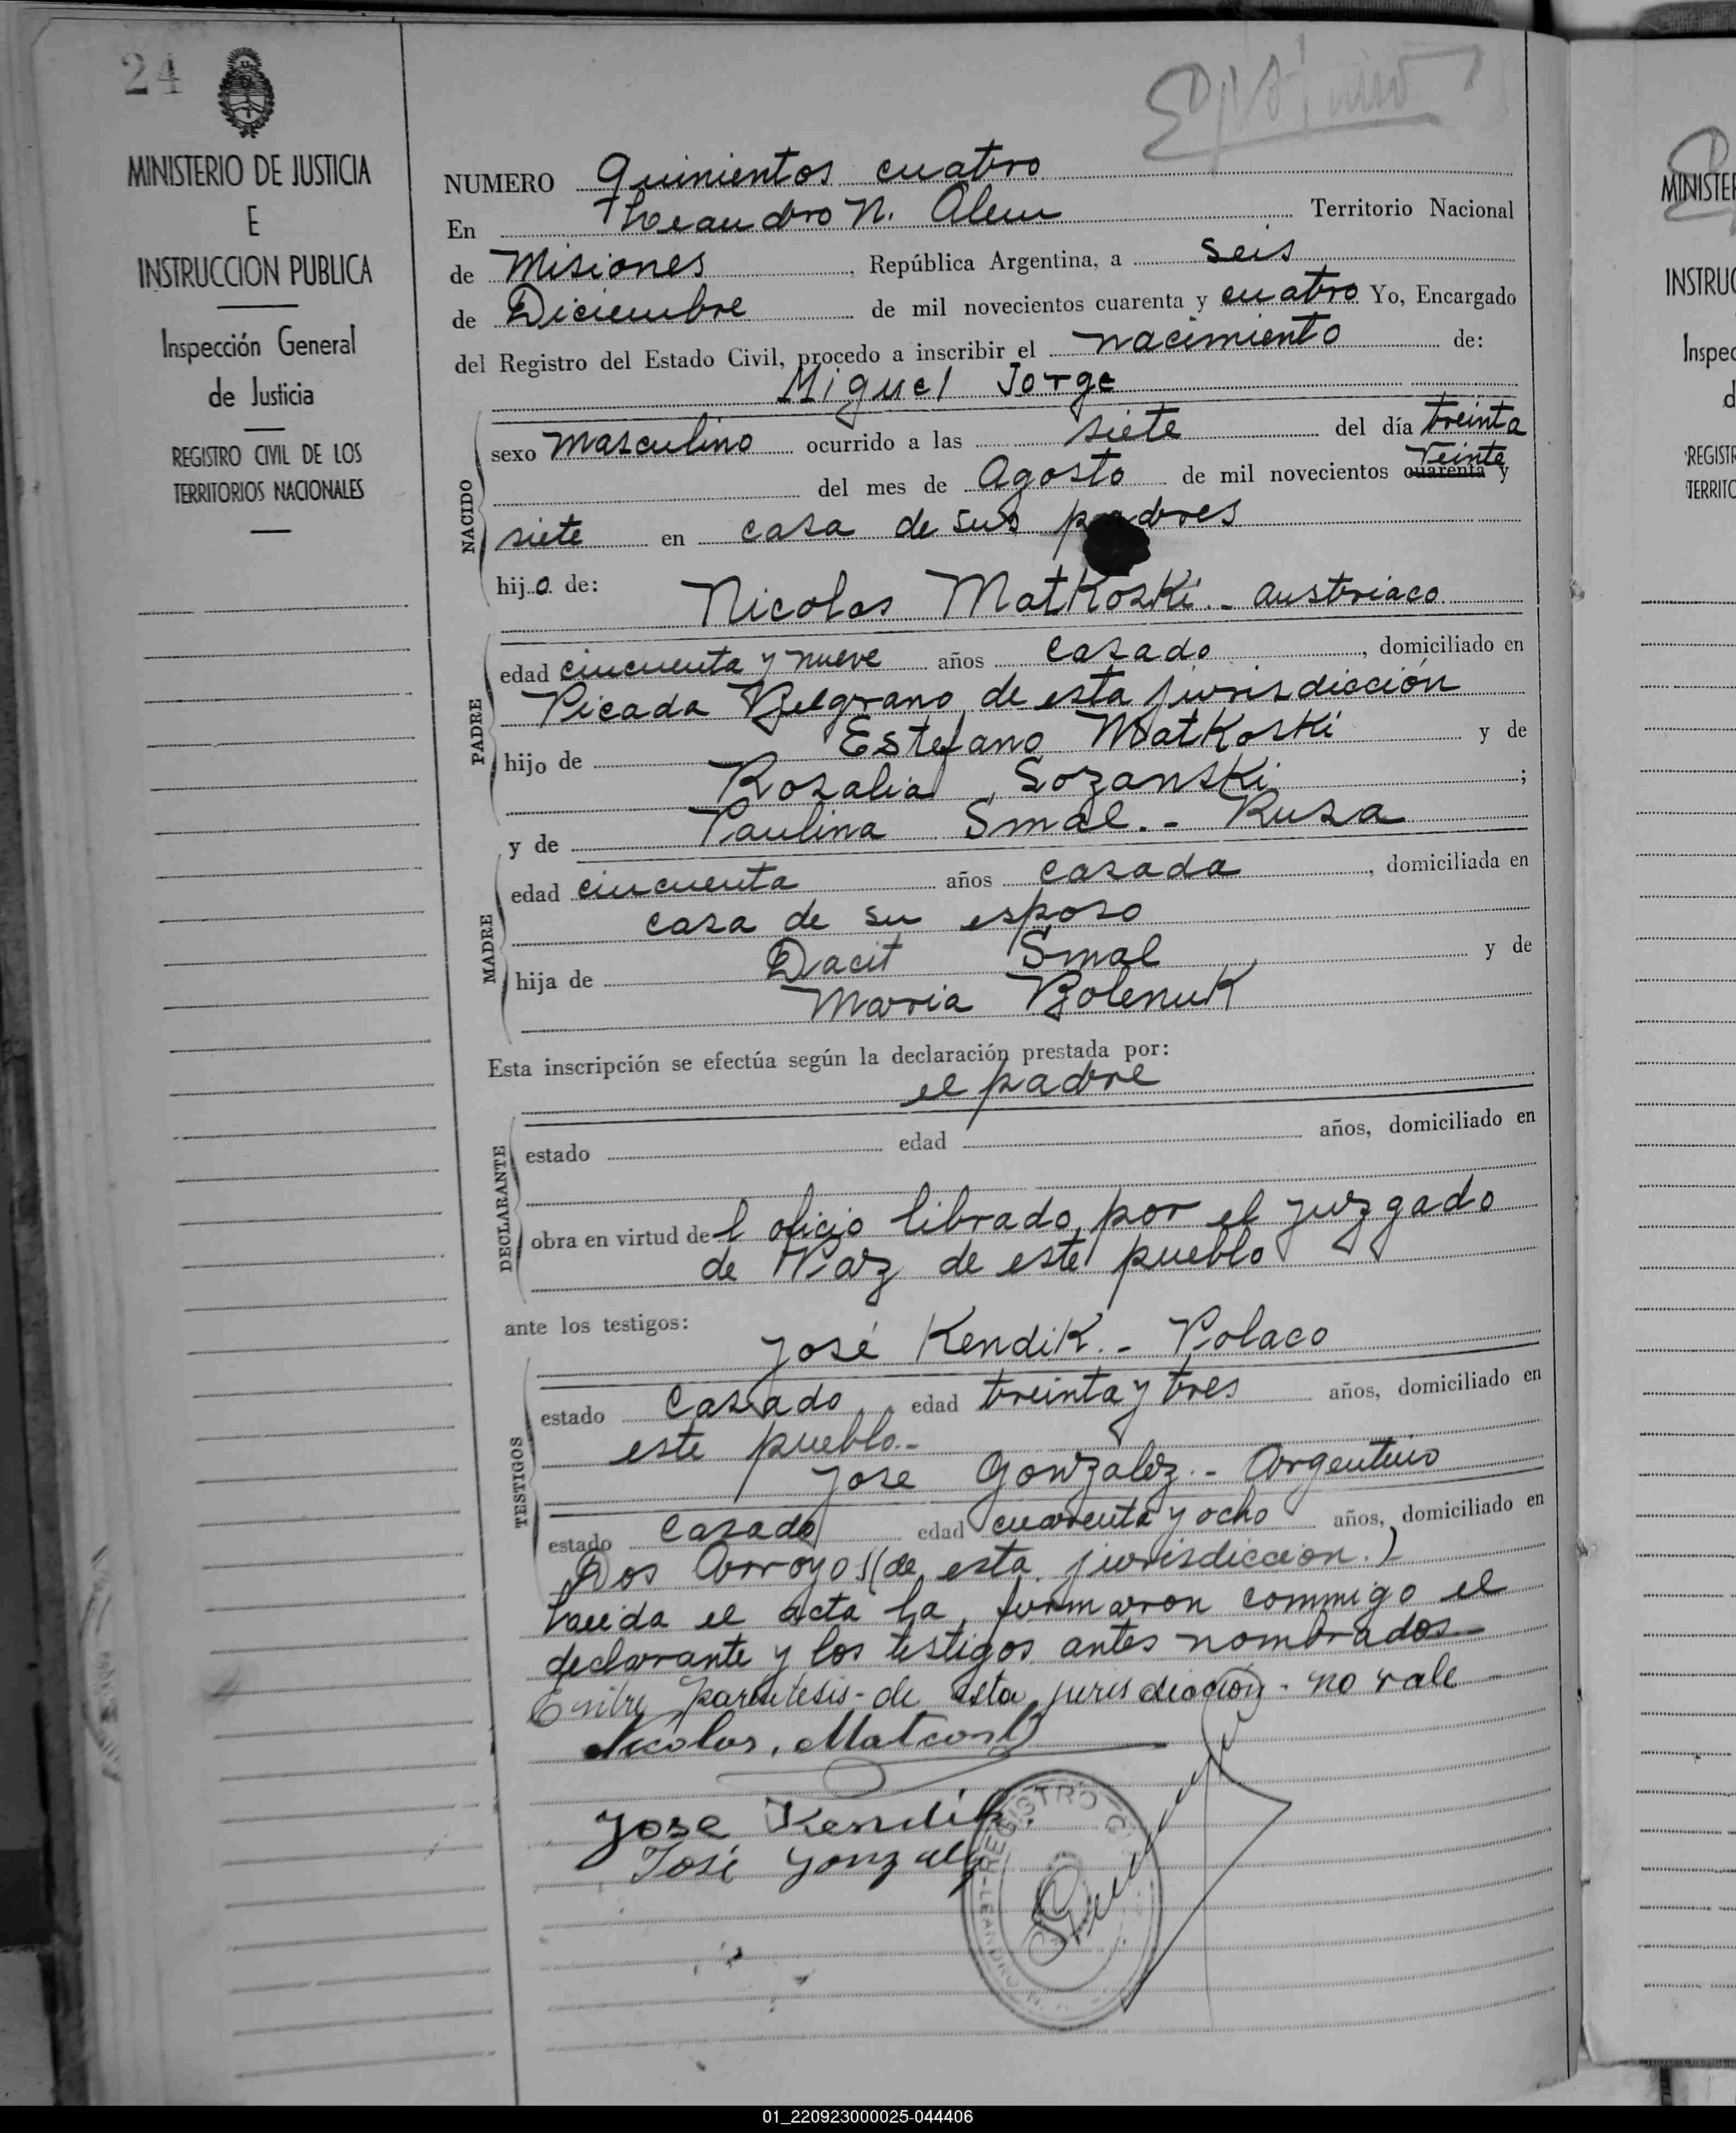 24
MINISTERIO DE JUSTICIA
E
INSTRUCCION PUBLICA
Inspección General
de Justicia
REGISTRO CIVIL DE LOS
TERRITORIOS NACIONALES
NUMERO Quinientos cuatro
En Leandro N. Alem Territorio Nacional
de Misiones, República Argentina, a seis
de Diciembre de mil novecientos cuarenta y cuatro Yo, Encargado
del Registro del Estado Civil, procedo a inscribir el nacimiento de:
Miguel Jorge
NACIDO
sexo masculino ocurrido a las siete del día treinta
del mes de Agosto de mil novecientos cuarenta veinte y
siete en casa de sus padres
hijo de:
Nicolas Matkoski.- austriaco
PADRE
edad cincuenta y nueve años casado, domiciliado en
Picada Belgrano de esta jurisdicción
hijo de Estefano Matkoski y de
Rosalia Sozanski;
y de Paulina Smal.- Rusa
MADRE
edad cincuenta años casada, domiciliada en
casa de su esposo
hija de Dacit Smal y de
Maria Bolenuk
Esta inscripción se efectúa según la declaración prestada por:
el padre
DECLARANTE
estado edad años, domiciliado en
obra en virtud del oficio librado por el juzgado
de Paz de este pueblo
ante los testigos:
José Kendik.- Polaco
TESTIGOS
estado Casado edad treinta y tres años, domiciliado en
este pueblo.-
Jose Gonzalez.- Argentino
estado Casado edad cuarenta y ocho años, domiciliado en
Dos Arroyos (de esta jurisdiccion.)
Leida el acta la firmaron commigo el
declarante y los testigos antes nombrados.-
Entre parentesis-de esta jurisdiccion- no vale-
Nicolas. Matcoski
Jose Kendik.
José Gonzalez
REGISTRO C
LEANDRO N.
MINISTE
INSTRUC
Inspec
d
REGISTR
TERRITO
01_220923000025-044406